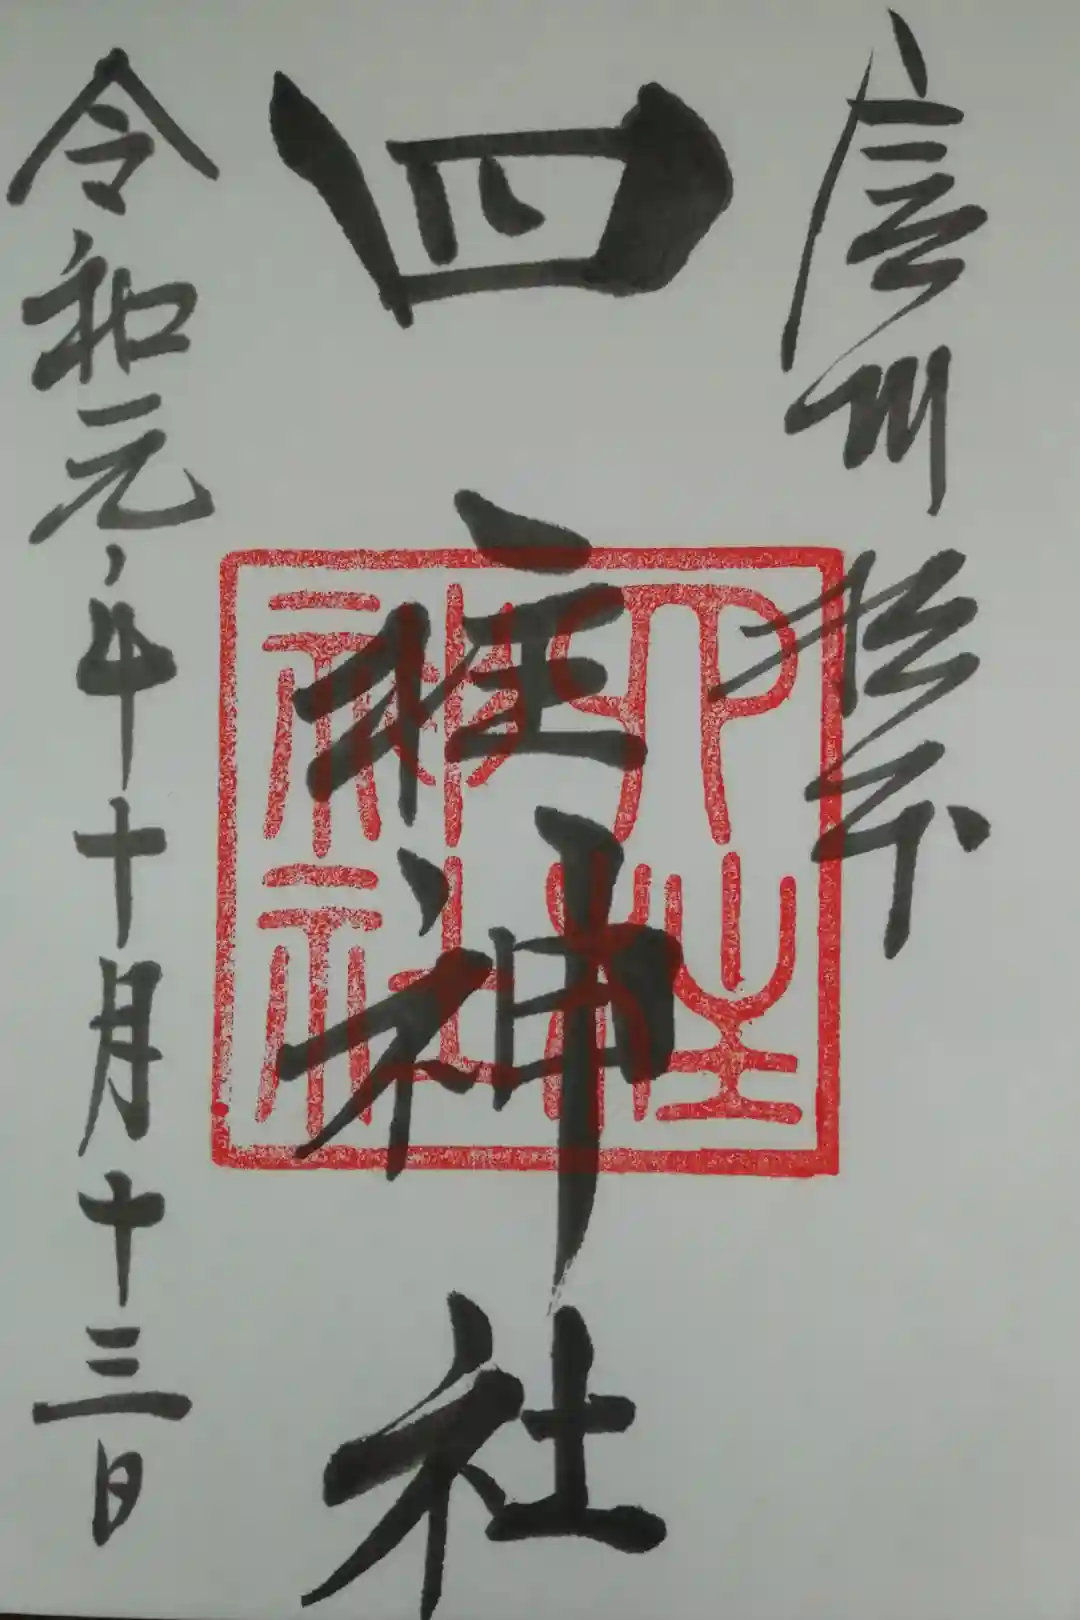 信州松本
四柱神社
四柱神社
令和元年十月十三日